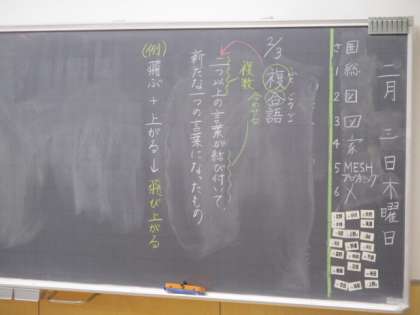 二月三日木曜日
さ 国
1 総
2 図
3 図
4 家
5 MESH
6
2/3
複合語
複数
合わせる
二つ以上の言葉が結び付いて、
新たな一つの言葉になったもの
(例)飛ぶ+上がる→飛び上がる